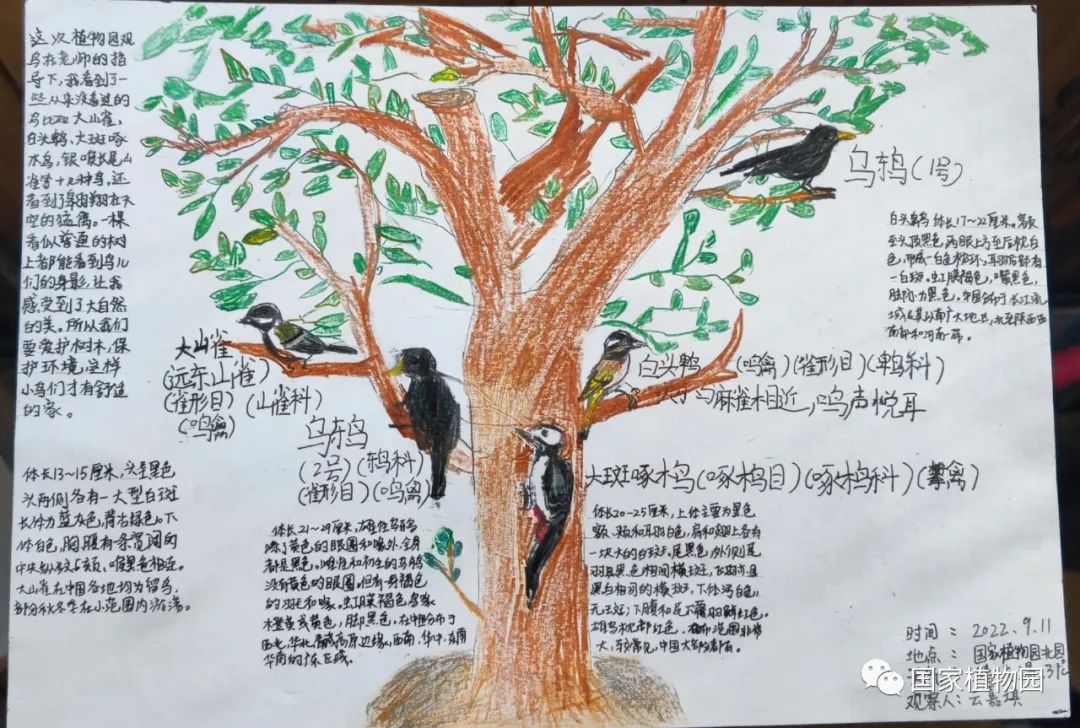 这次植物园观
鸟在老师的指
导下,我看到了一
些从来没看过的
鸟比如大山雀,
白头鹎、大斑啄
木鸟,银喉长尾山
雀等十几种鸟,还
看到了翱翔在天
空的猛禽。一棵
看似普通的树
上都能看到鸟儿
们的身影,让我
感受到了大自然
的美。所以我们
要爱护树木,保
护环境,这样
小鸟们才有舒适
的家。
乌鸫(1号)
白头鹎 体长17~22厘米。额
至头顶黑色,两眼上方至后枕白
色,形成一白色枕环,耳羽后部有
一白斑。虹膜褐色,嘴黑色,
脚 为黑色,中国分布于长江流
域及其以南广大地区,
西部和河南一带。
大山雀
(远东山雀)
(雀形目)(山雀科)
(鸣禽)
白头鹎 (鸣禽)(雀形目)(鹎科)
大小与麻雀相近,鸣声悦耳
乌鸫
(2号)(鸫科)
(雀形目)(鸣禽)
大斑啄木鸟(啄木鸟目)(啄木鸟科)(攀禽)
体长13~15厘米,头呈黑色
头两侧各有一大型白斑
体为蓝灰色,背沾绿色。下
体白色,胸腹有条宽阔的
中央纵纹与颏、喉黑色相连。
大山雀在中国各地均为留鸟,
部分秋冬季在小范围内游荡。
体长21~29厘米,雄性乌鸫
除了黄色的眼圈和喙外,全身
都是黑色。雌性和初生的乌鸫
没有黄色的眼圈,但有一身褐色
的羽毛和喙。虹膜褐色,鸟喙
橙黄或黄色,脚黑色。在中国分布于
西北,华北,高原边缘,西南,华中,东南
华南的广东区域。
体长20~25厘米,上体主要为黑色
额、颊和耳羽白色,肩和翅上各有
一块大的白斑。尾黑色,外侧尾
羽具黑色相间横斑,飞羽亦具
黑白相间的横斑,下体污白色,
无斑;下腹和尾下覆羽鲜红色。
雄鸟枕部红色。 分布范围非常
大,较常见,中国大部分都有。
时间:2022.9.11
地点:国家植物园北园
观察人:云嘉琪
国家植物园